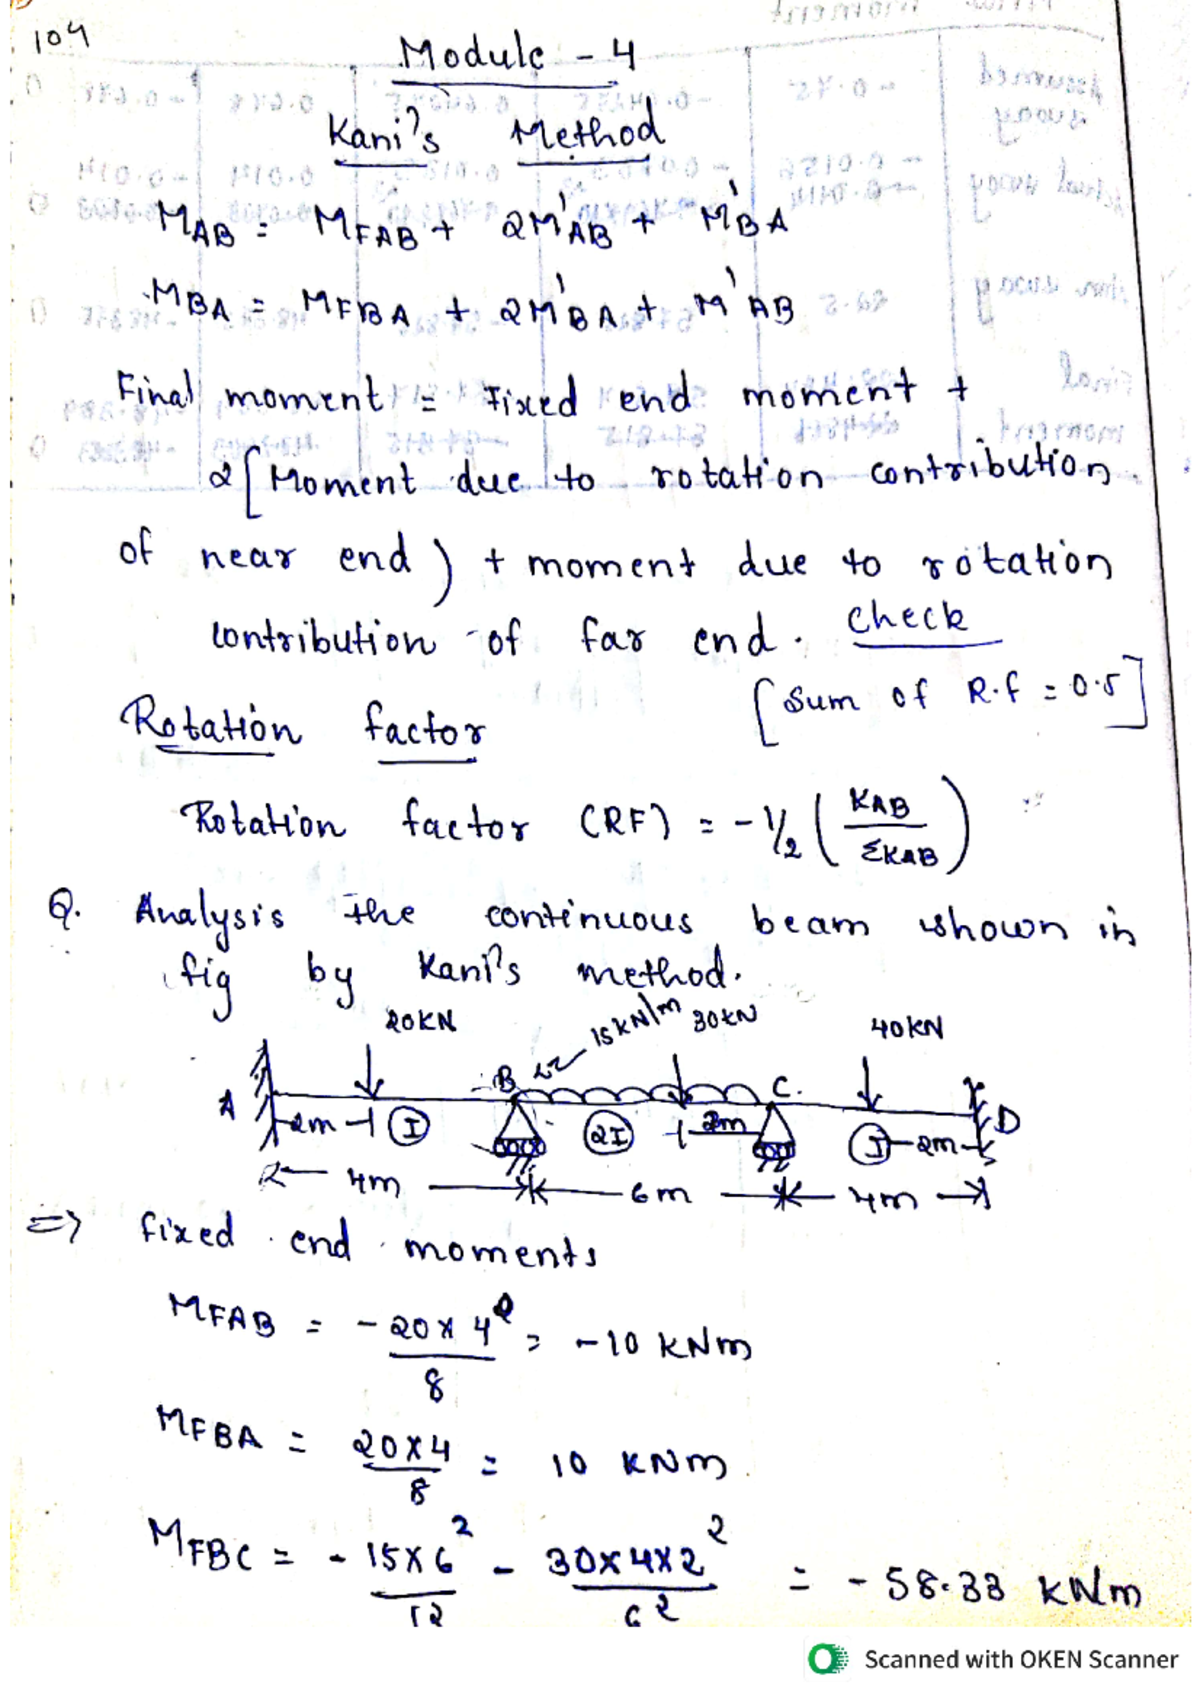 104
Module - 4
Kani's Method
MAB = MFAB + 2M'AB + M'BA
MBA = MFBA + 2M'BA + M'AB
Final moment = Fixed end moment +
2[Moment due to rotation contribution
of near end) + moment due to rotation
contribution of far end. Check
[Sum of R.f = 0.5]
Rotation factor
Rotation factor (RF) = -1/2 (KAB/ΣKAB)
Q. Analysis the continuous beam shown in
fig by Kani's method.
20KN 15kN/m 30kN 40kN
A B C. D
2m I 2I 2m I 2m
4m 6m 4m
=> fixed end moments
MFAB = -20x4/8 = -10 KNm
MFBA = 20x4/8 = 10 KNm
MFBC = -15x6²/12 - 30x4x2²/6² = -58.33 kNm
Scanned with OKEN Scanner